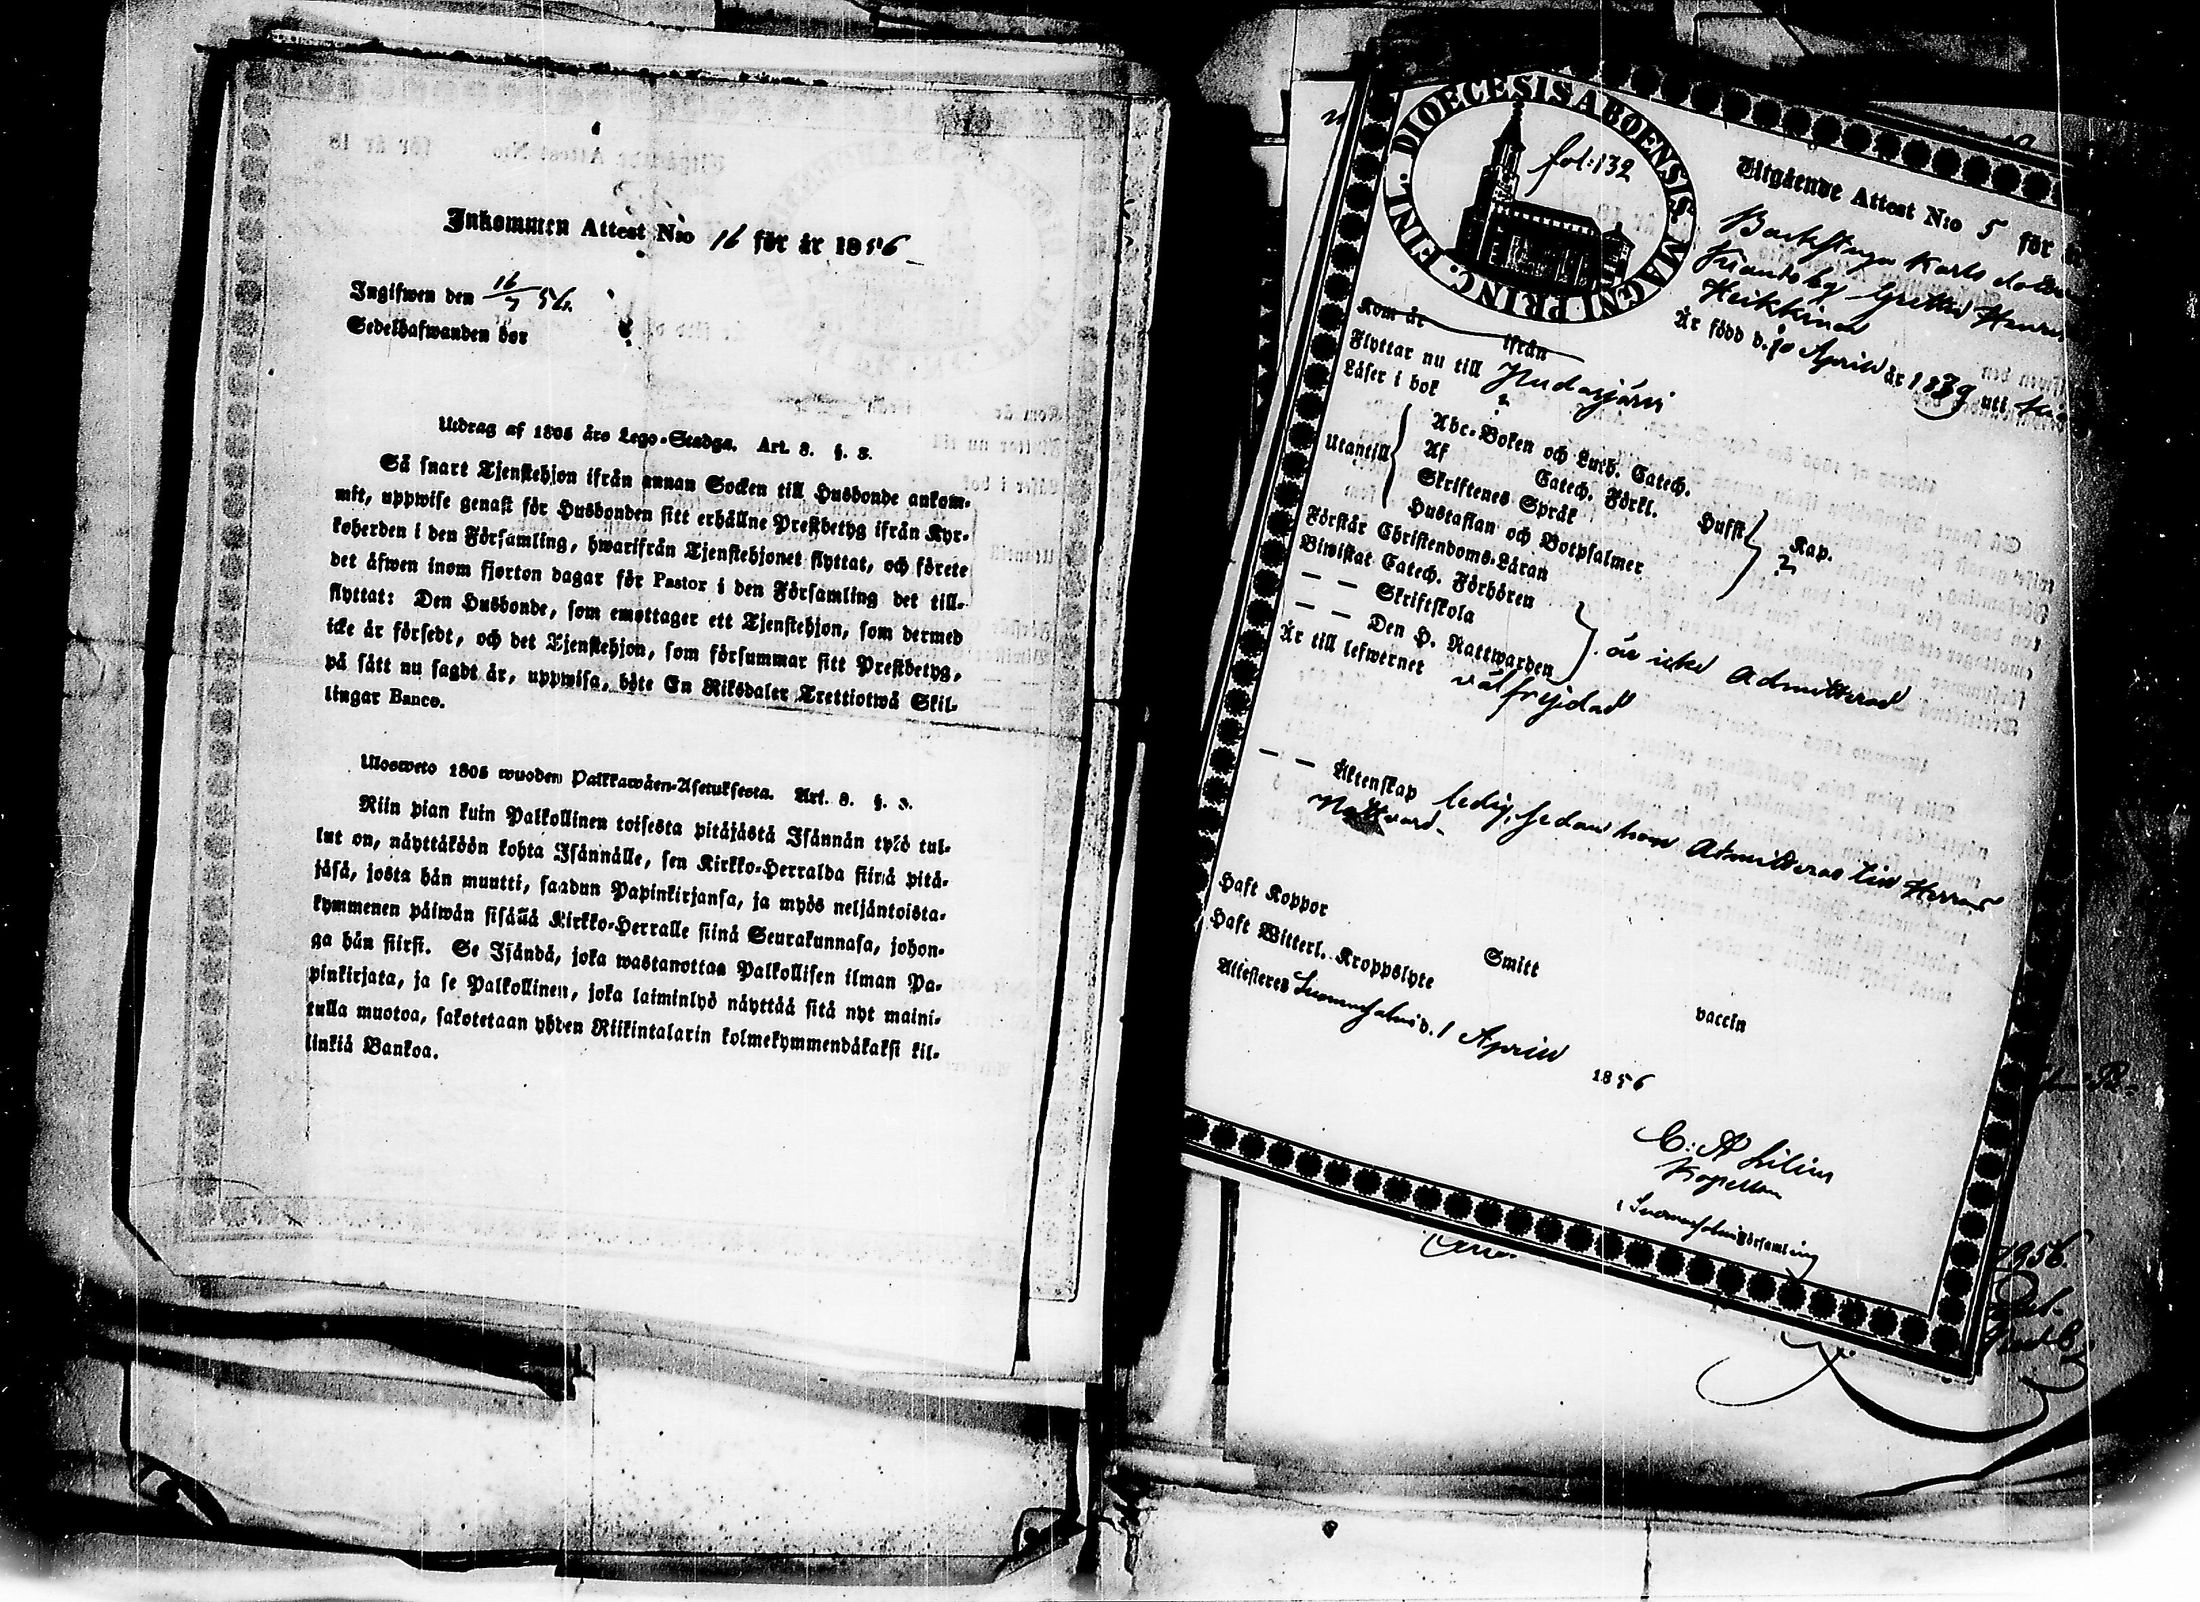 Inkommen Attest N:o 16 för år 1856
Ingifwen den 16/7 56.
Sedelhafwanden bor
Utdrag af 1805 års Lego-Stadga. Art. 8. §. 3.
Så snart Tjenstehjon ifrån annan Socken till Husbonde ankom-
mit, uppwise genast för Husbonden sitt erhållne Prestbetyg ifrån Kyr-
koherden i den Församling, hwarifrån Tjenstehjonet flyttat, och förete
det äfwen inom fjorton dagar för Pastor i den Församling det till-
flyttat: Den Husbonde, som emottager ett Tjenstehjon, som dermed
icke är försedt, och det Tjenstehjon, som försummar sitt Prestbetyg,
på sätt nu sagdt är, uppwisa, böte En Riksdaler Trettiotwå Skil-
lingar Banco.
Ulosweto 1805 wuoden Palkkawäen-Asetuksesta. Art. 8. §. 3.
Niin pian kuin Palkollinen toisesta pitäjästä Isännän tykö tul-
lut on, näyttäköön kohta Isännälle, sen Kirkko-Herralda siinä pitä-
jäsä, josta hän muutti, saadun Papinkirjansa, ja myös neljäntoista-
kymmenen päiwän sisällä Kirkko-Herralle siinä Seurakunnasa, johon-
ga hän siirsi. Se Isändä, joka wastanottaa Palkollisen ilman Pa-
pinkirjata, ja se Palkollinen, joka laiminlyö näyttää sitä nyt maini-
tulla muotoa, sakotetaan yhden Riikintalarin kolmekymmendäkaksi kil-
linkiä Bankoa.
DIOECESIS ABOENSIS. MAGNI PRINC. FINL.
fol: 132
Utgående Attest N:o 5 för
Karls
Heikkinen
Är född d. 10 April år 1839 uti
Kom år ifrån
Flyttar nu till Pudasjärvi
Läser i bok
Utantill
Abc-Boken och Luth. Catech.
Af Catech. Förkl. Hufst Kap.
Skriftenes Språk
Hustaflan och Botpsalmer
Förstår Christendoms-Läran
Biwistat Catech. Förhören
— — Skriftskola
— — Den H. Nattwarden är icke Admitterad
Är till lefwernet välfrejdad
— — Äktenskap ledig, sedan hon Admitteras till Herrans
Nattvard.
Haft Koppor Smitt vaccin
Haft Witterl. Kroppslyte
Attesteras Suomussalmi d. 1 April 1856
C: A Lilius
Kapellan
i Suomussalmi Församling
1956.